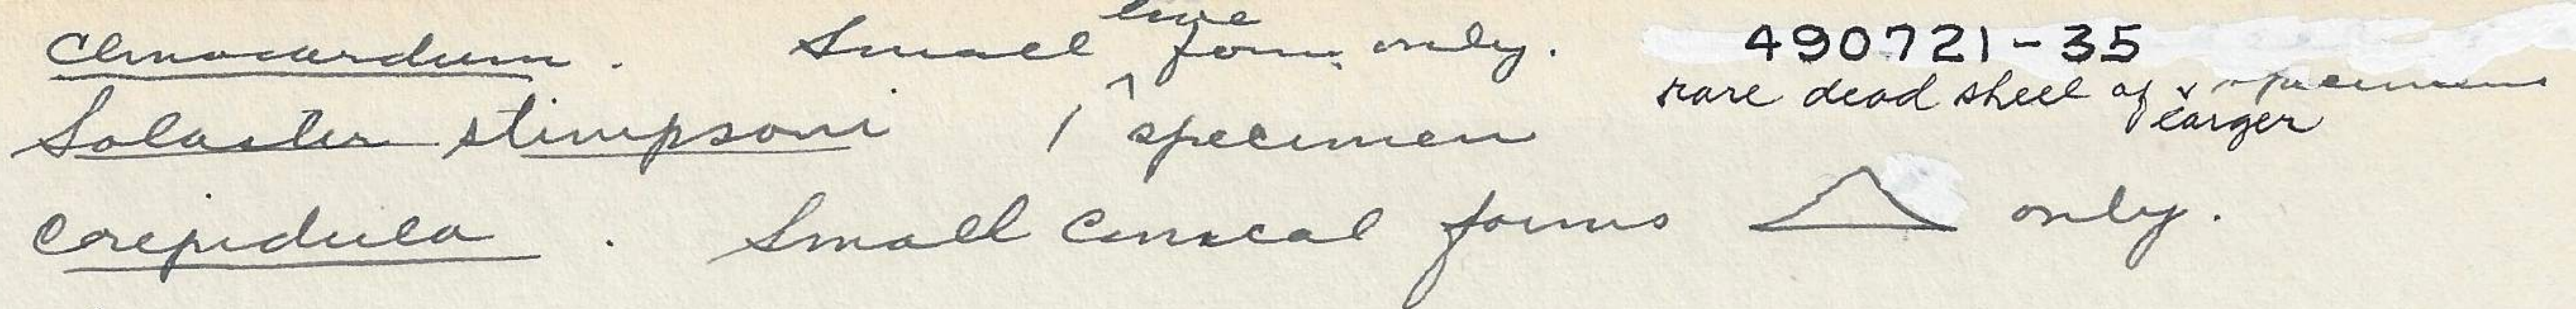 Clinocardium. Small live form only. 490721-35
rare dead shell of larger specimens
Solaster stimpsoni 1 specimen
Crepidula. Small conical forms only.